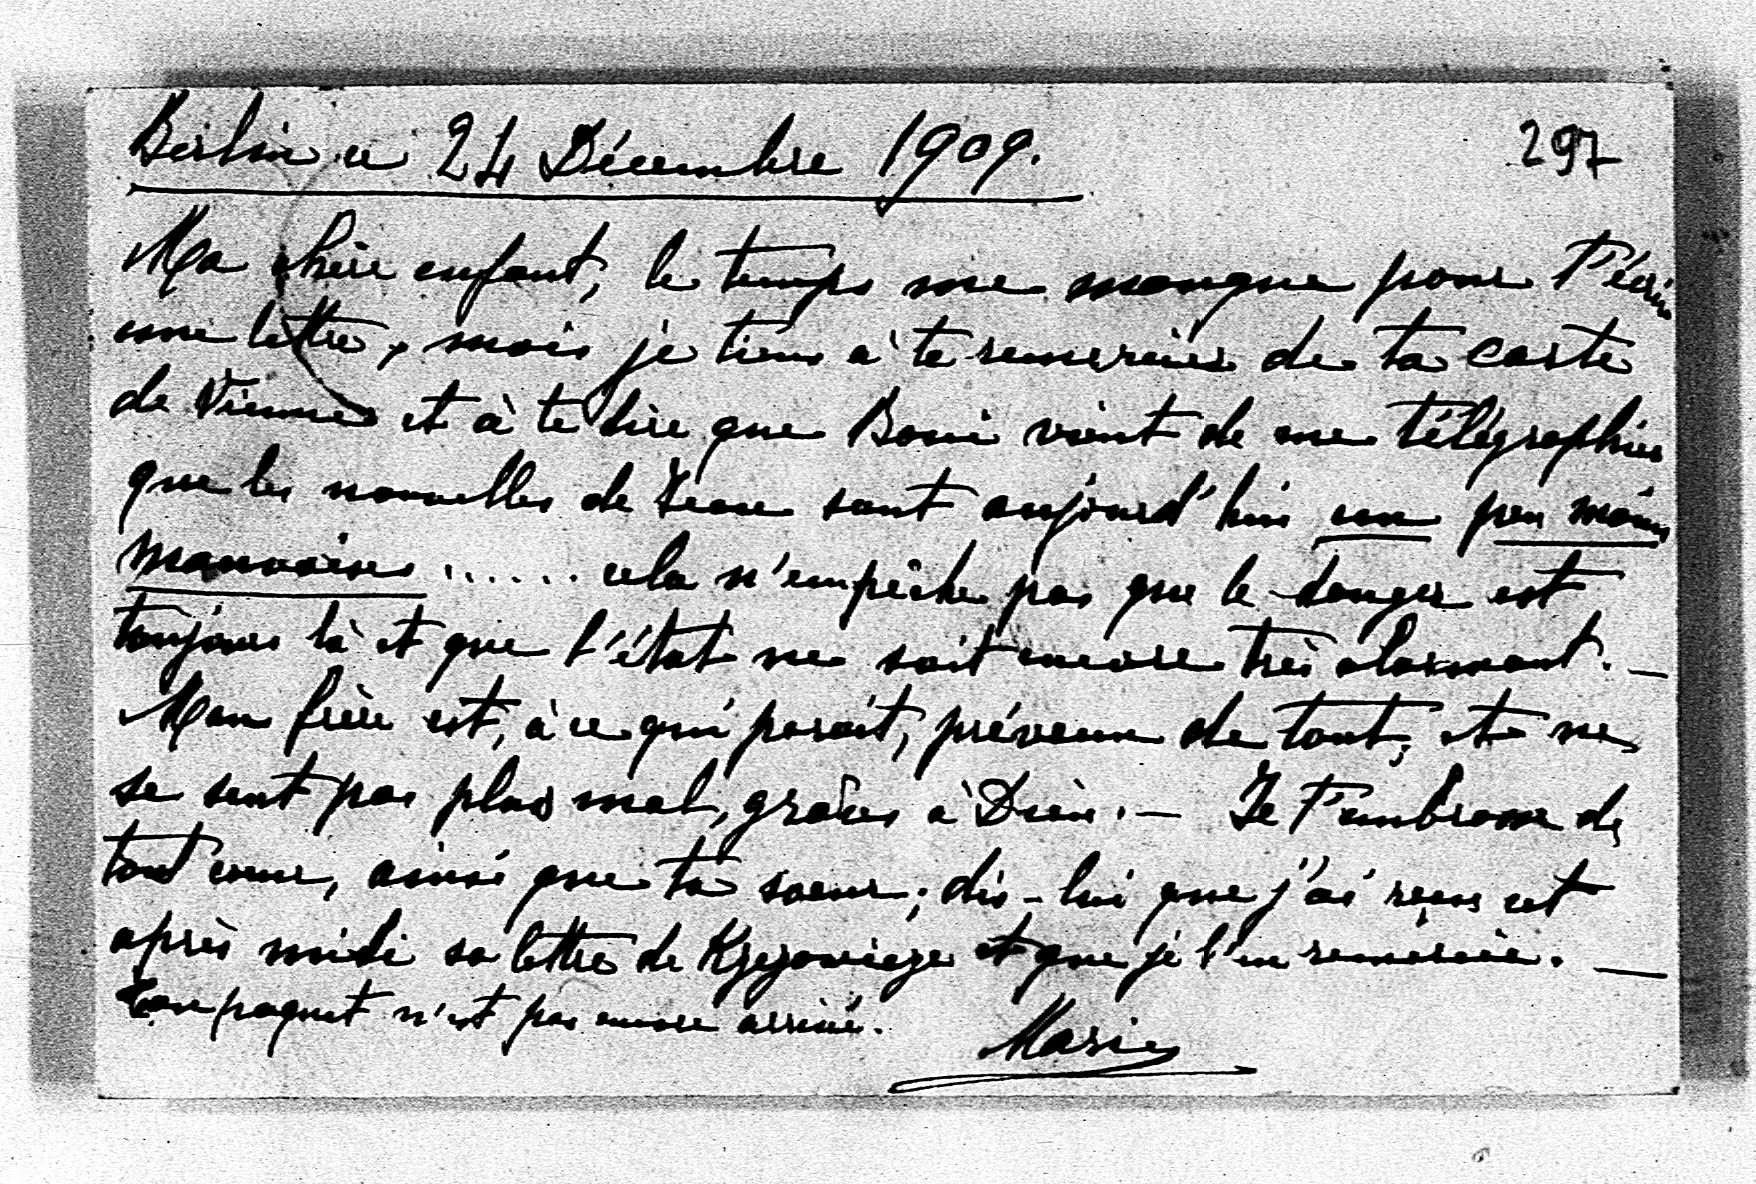 Berlin ce 24 Décembre 1909.
297
Ma chère enfant, le temps me manque pour t'écrire
une lettre, mais je tiens à te remercier de ta carte
de Vienne et à te dire que Boni vient de me télégraphier
que les nouvelles de Jean sont aujourd'hui un peu moins
mauvaises ...... cela n'empêche pas que le danger est
toujours là et que l'état ne soit encore très alarmant. —
Mon frère est, à ce qui parait, prévenu de tout, et ne
se sent pas plus mal, grâces à Dieu. — Je t'embrasse de
tout cœur, ainsi que ta sœur; dis-lui que j'ai reçu cet
après midi sa lettre de et que je l'en remercie. —
Ton paquet n'est pas encore arrivé.
Marie